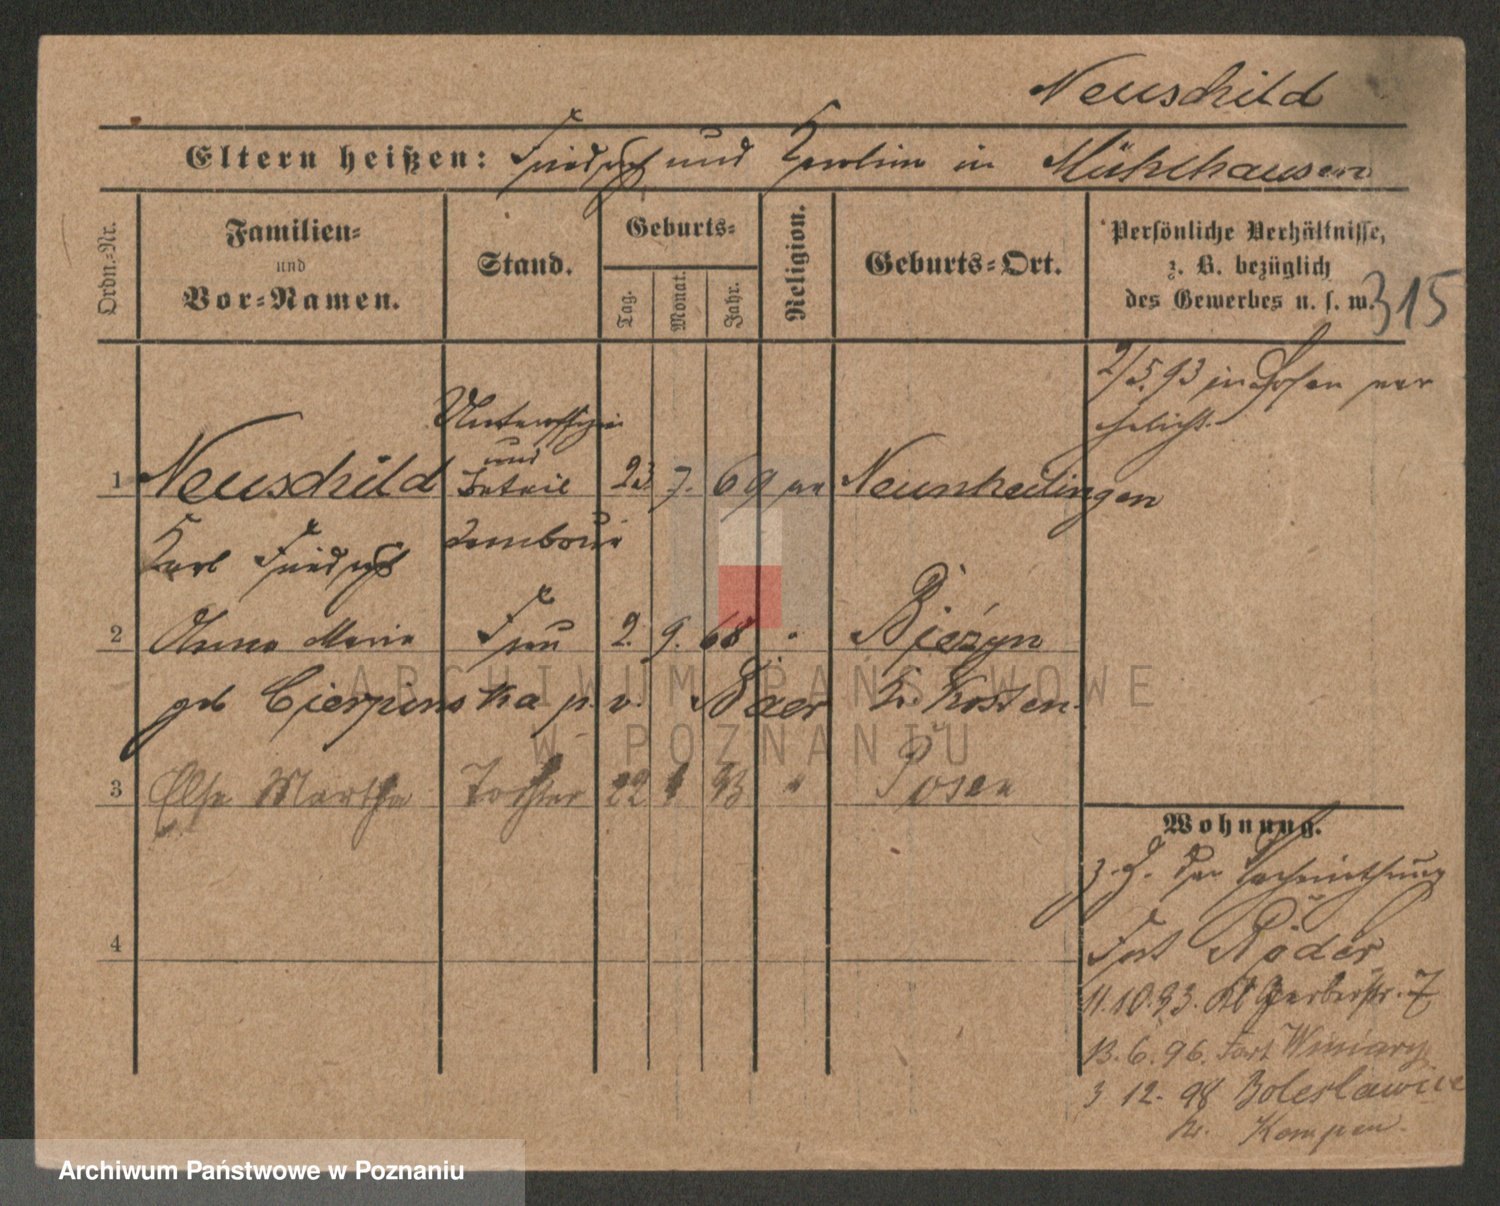 Neuschild
Eltern heißen: Friedrich und Karoline in Mühlhausen
Ordn.-Nr.
Familien-
und
Vor-Namen.
Stand.
Geburts-
Tag.
Monat.
Jahr.
Religion.
Geburts-Ort.
Persönliche Verhältnisse,
z. B. bezüglich
des Gewerbes u. s. w.
315
2/5.93 in Posen ver
ehelicht.
Unteroffizier
und
1 Neuschild 23. 7. 69 Neunheilingen
Karl Friedrich
2 Anna Marie Frau 2. 9. 68 " Bieżyn
geb Cierpinska p. v. Baer Kr. Kosten.
3 Else Martha Tochter 22 93 " Posen
4
Wohnung.
Fort Röder
11.10.93. Kl Gerberstr. 7
13.6.96. Fort Winiary
3 12. 98 Boleslawice
Kr. Kempen.
ARCHIWUM PAŃSTWOWE
W POZNANIU
Archiwum Państwowe w Poznaniu